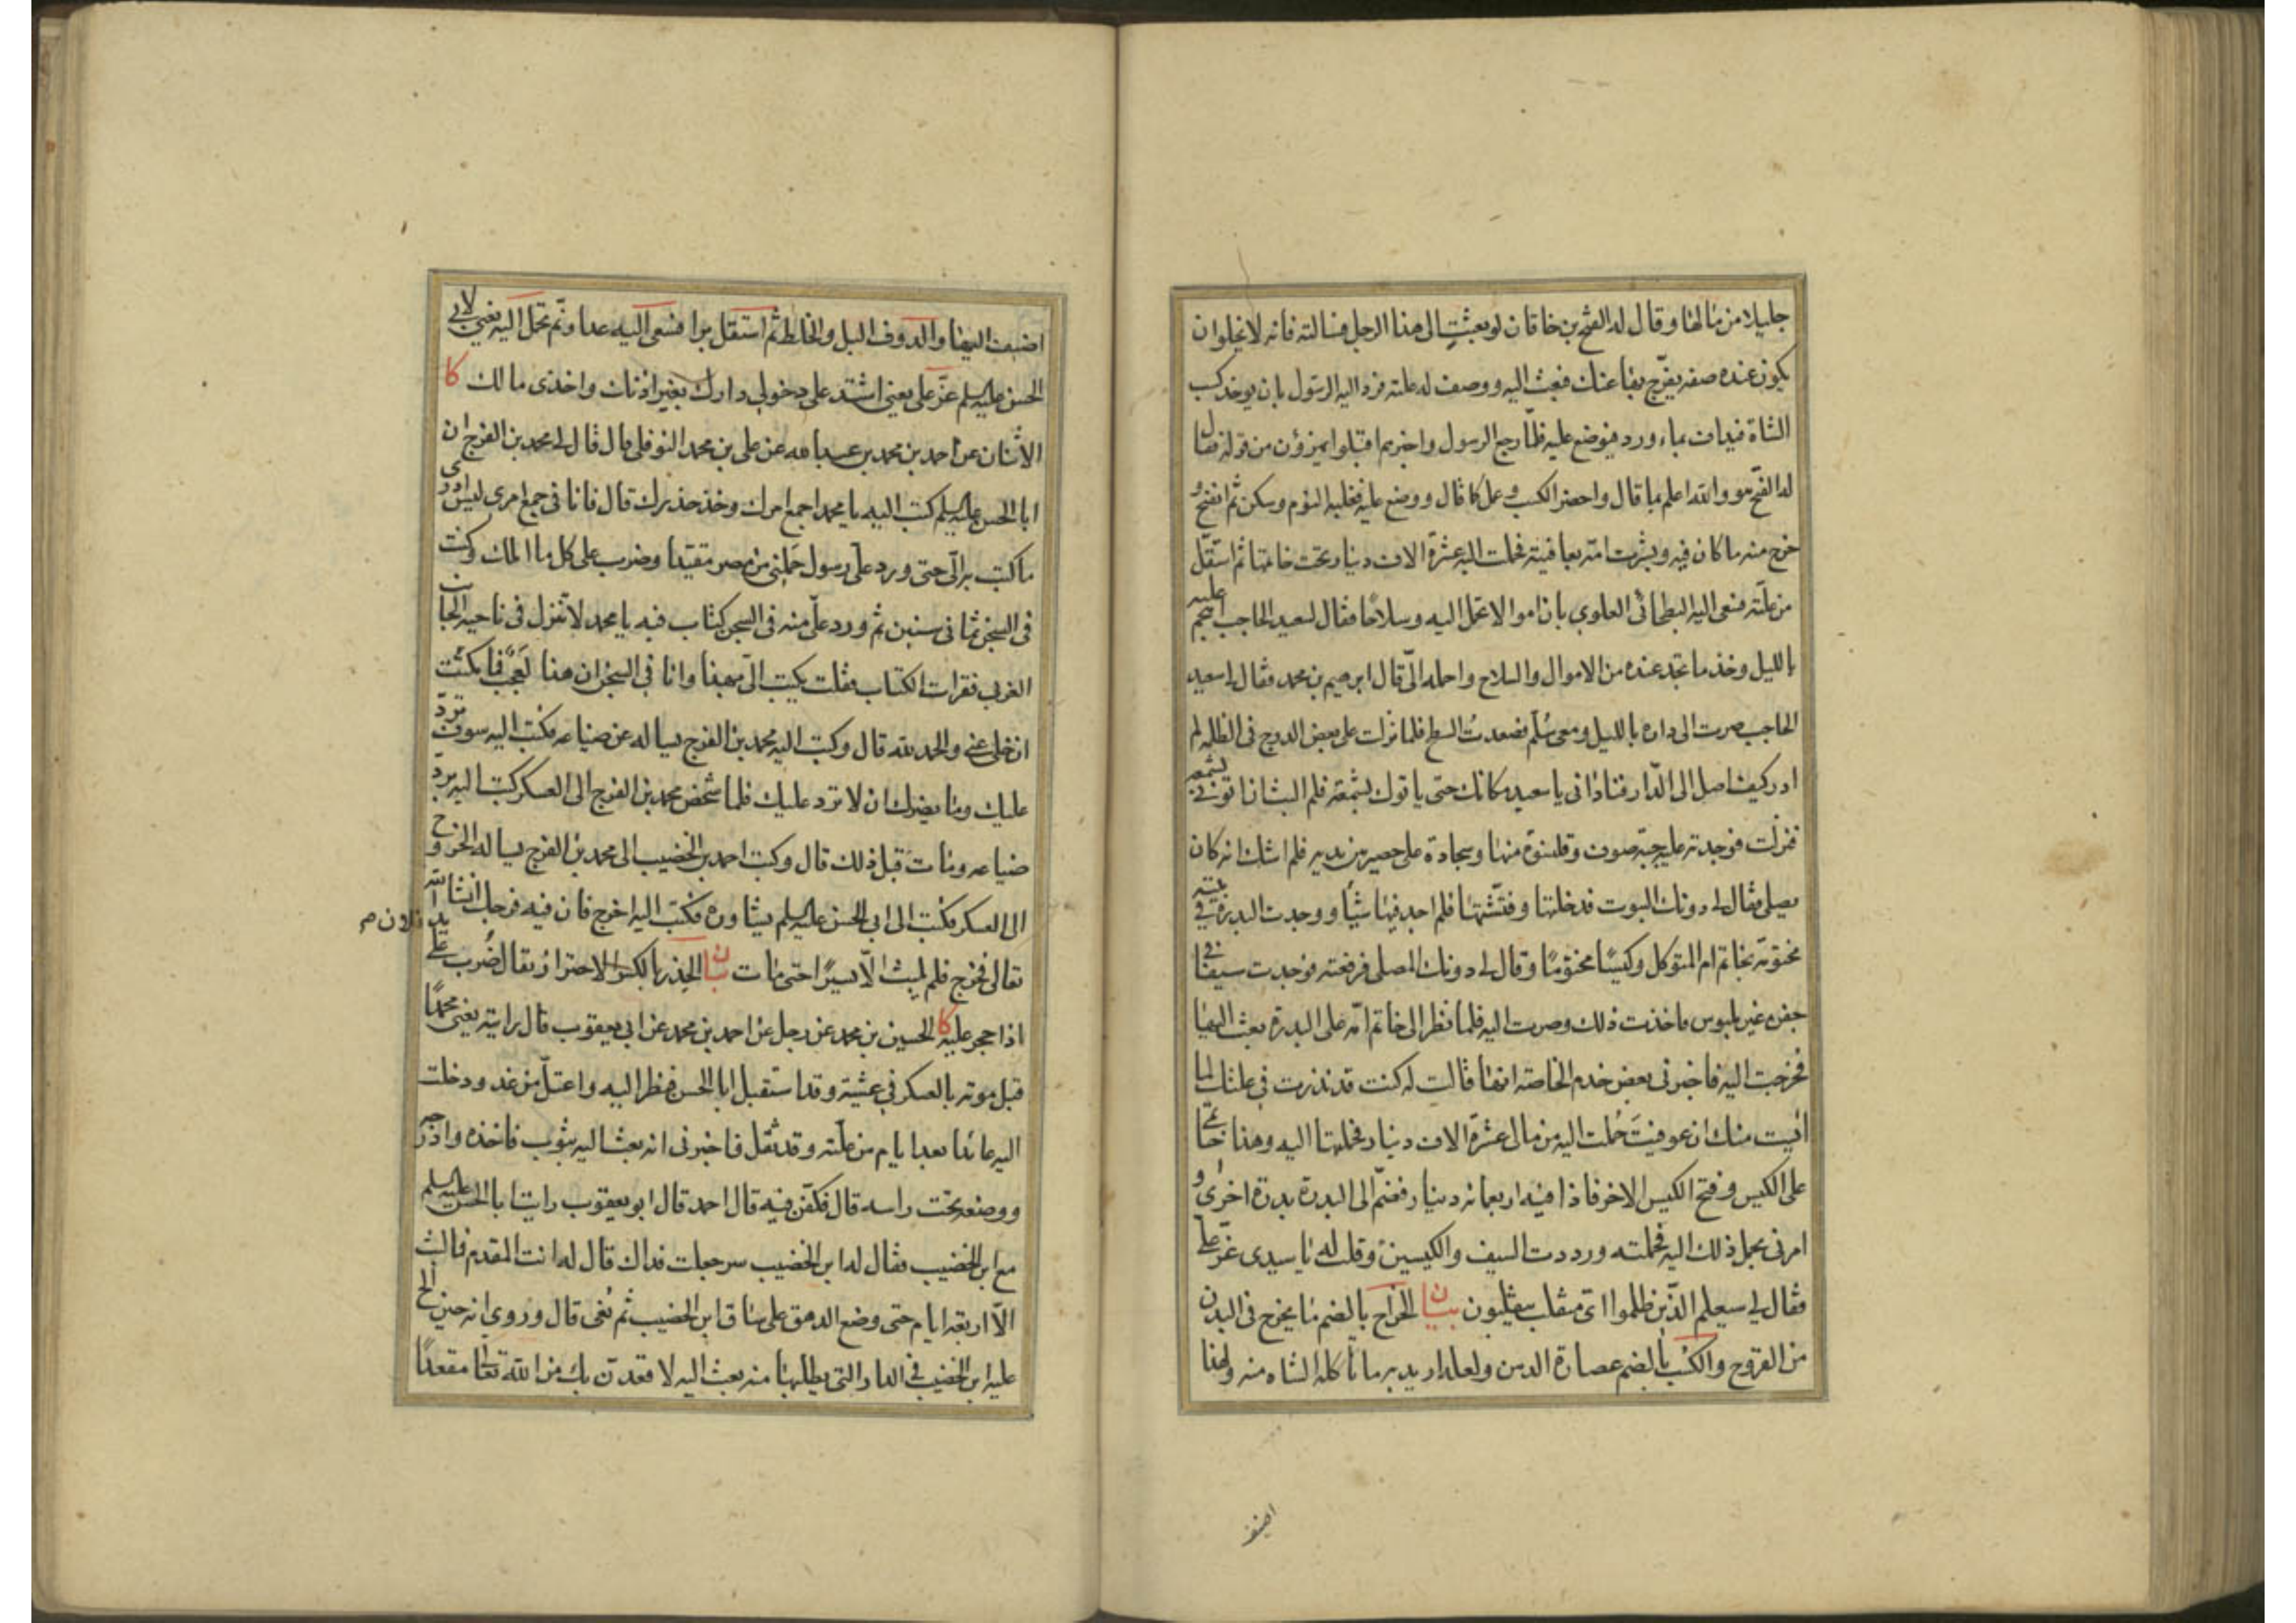 جليلا من مالها وقال له الفتح بن خاقان لو بعثت الى هذا الرجل فسالته فانه لا يخلوا ان
يكون عنده صفة يفرّج بها عنك فبعث اليه ووصف له علته فرد اليه الرسول بان يوخذ كسب
الشاة فيداف بماء ورد فيوضع عليه فلمّا رجع الرسول واخبرهم اقبلوا يهزؤن من قوله فقال
له الفتح هو والله اعلم بما قال واحضر الكسب وعمل كما قال ووضع عليه فغلبه النوم وسكن ثم انفتح و
خرج منه ما كان فيه وبشرت امّه بعافيته فحملت اليه عشرة الاف دينار تحت خاتمها ثم استقلّ
من علّته فسعى اليه البطحائى العلوي بان اموالا تحمل اليه وسلاحا فقال لسعيد الحاجب اهجم عليه
بالليل وخذ ما تجد عنده من الاموال والسلاح واحمله الىّ قال ابرهيم بن محمد فقال لى سعيد
الحاجب صرت الى داره بالليل ومعى سُلّم فصعدت السطح فلما نزلت على بعض الدرج فى الظلمة لم
ادر كيف اصل الى الدّار فنادانى يا سعيد مكانك حتى ياتوك بشمعة فلم البث ان اتونى بشمعة
فنزلت فوجدته عليه جبّة صوف وقلنسوة منها وسجادة على حصير بين يديه فلم اشك انه كان
يصلى فقال لى دونك البيوت فدخلتها وفتّشتها فلم اجد فيها شيئا ووجدت البدرة فى بيته
مختومة بخاتم ام المتوكل وكيسًا مختومًا وقال لى دونك المصلى فرفعته فوجدت سيفا فى
جفن غير ملبوس فاخذت ذلك وصرت اليه فلما نظر الى خاتم امّه على البدرة بعث اليها
فخرجت اليه فاخبرنى بعض خدم الخاصة انها قالت له كنت قد نذرت فى علتك لما
ايست منك ان عوفيتَ حملت اليه من مالى عشرة الاف دينار فحملتها اليه وهذا خاتمى
على الكيس وفتح الكيس الاخر فاذا فيه اربعمائه دينار فضمّ الى البدرة بدرة اخرى و
امرنى بحمل ذلك اليه فحملته ورددت السيف والكيسين وقلت له يا سيدى عزّ علىّ
فقال لى سيعلم الذّين ظلموا اىّ منقلب ينقلبون بيان الخراج بالضم ما يخرج فى البدن
من القروح والكسب بالضم عصارة الدهن ولعله اريد به ما تاكله الشاه منه ولهذا
اضيف
اضيف اليها والدوف البل والخلط ثم استقل برا فسعى اليه عدا وثم تحمل اليه يعنى لابى
الحسن عليه السلم عزّ على يعنى اشتد على دخولي دارك بغير اذنك واخذى مالك كا
الاثنان عن احمد بن محمد بن عبدالله عن على بن محمد النوفلى قال قال لى محمد بن الفرج ان
ابا الحسن عليه السلم كتب اليه يا محمد اجمع امرك وخذ حذرك قال فانا فى جمع امرى ليس ادرى
ما كتب به الىّ حتى ورد علىّ رسول حَملنى من مصر مقيّدا وضرب على كل ما املك وكنت
فى السجن ثمانى سنين ثم ورد علىّ منه فى السجن كتاب فيه يا محمد لا تنزل فى ناحية الجانب
الغربى فقرات الكتاب فقلت يكتب الىّ بهذا وانا فى السجن ان هذا لَعجبٌ فما مكثت
ان خلى عنى والحمد لله قال وكتب اليه محمد بن الفرج يساله عن ضياعه فكتب اليه سوف تردّ
عليك وما يضرك ان لا تردّ عليك فلما شخص محمد بن الفرج الى العسكر كتب اليه بردّ
ضياعه ومات قبل ذلك قال وكتب احمد بن الخضيب الى محمد بن الفرج يساله الخروج
الى العسكر فكتب الى ابى الحسن عليه السلم يشاوره فكتب اليه اخرج فان فيه فرجك انشا الله
تعالى فخرج فلم يلبث الّا يسيرًا حتى مات بيان الحذر بالكسر الاحتراز يقال ضُرب على
اذا حجر عليه كا الحسين بن محمد عن رجل عن احمد بن محمد عن ابى يعقوب قال رايته يعنى محمدًا
قبل موته بالعسكر في عشيّة وقد استقبل ابا الحسن فنظر اليه واعتلّ من غد ودخلت
اليه عائدا بعد ايام من علّته وقد ثقل فاخبرنى انه بعث اليه بثوب فاخذه وادرجه
ووضعه تحت راسه قال فكفّن فيه قال احمد قال ابو يعقوب رايت ابا الحسن عليه السلم
مع ابن الخضيب فقال له ابن الخضيب سر جعلت فداك قال له انت المقدم فما لبث
الّا اربعة ايام حتى وضع الدهق على ساق ابن الخضيب ثم نُعى قال وروي انه حين الح
عليه ابن الخضيب فى الدار التى يطلبها منه بعث اليه لاقعدنّ بك من الله تعالى مقعدًا